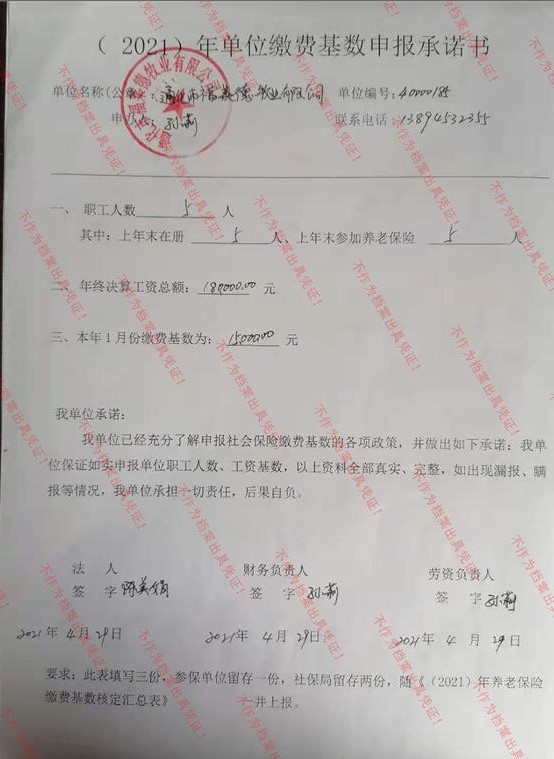 （ 2021）年单位缴费基数申报承诺书
单位名称(公章)：通化市 牧业有限公司 单位编号:40000185
申办人：孙莉 联系电话:13894532355
一、 职工人数 5 人
其中: 上年末在册 5 人、上年末参加养老保险 5 人
二、年终决算工资总额: 180000.00 元
三、本年 1 月份缴费基数为: 15000.00 元
我单位承诺:
我单位已经充分了解申报社会保险缴费基数的各项政策，并做出如下承诺: 我单
位保证如实申报单位职工人数、工资基数，以上资料全部真实、完整，如出现漏报、瞒
报等情况，我单位承担一切责任，后果自负。
法 人 财务负责人 劳资负责人
签 字 陈美娟 签 字 孙莉 签 字 孙莉
2021年 4月29日 2021年 4月29日 2021年 4 月 29日
要求: 此表填写三份，参保单位留存一份，社保局留存两份，随《（2021）年养老保险
缴费基数核定汇总表》 一并上报。
不作为档案出具凭证！